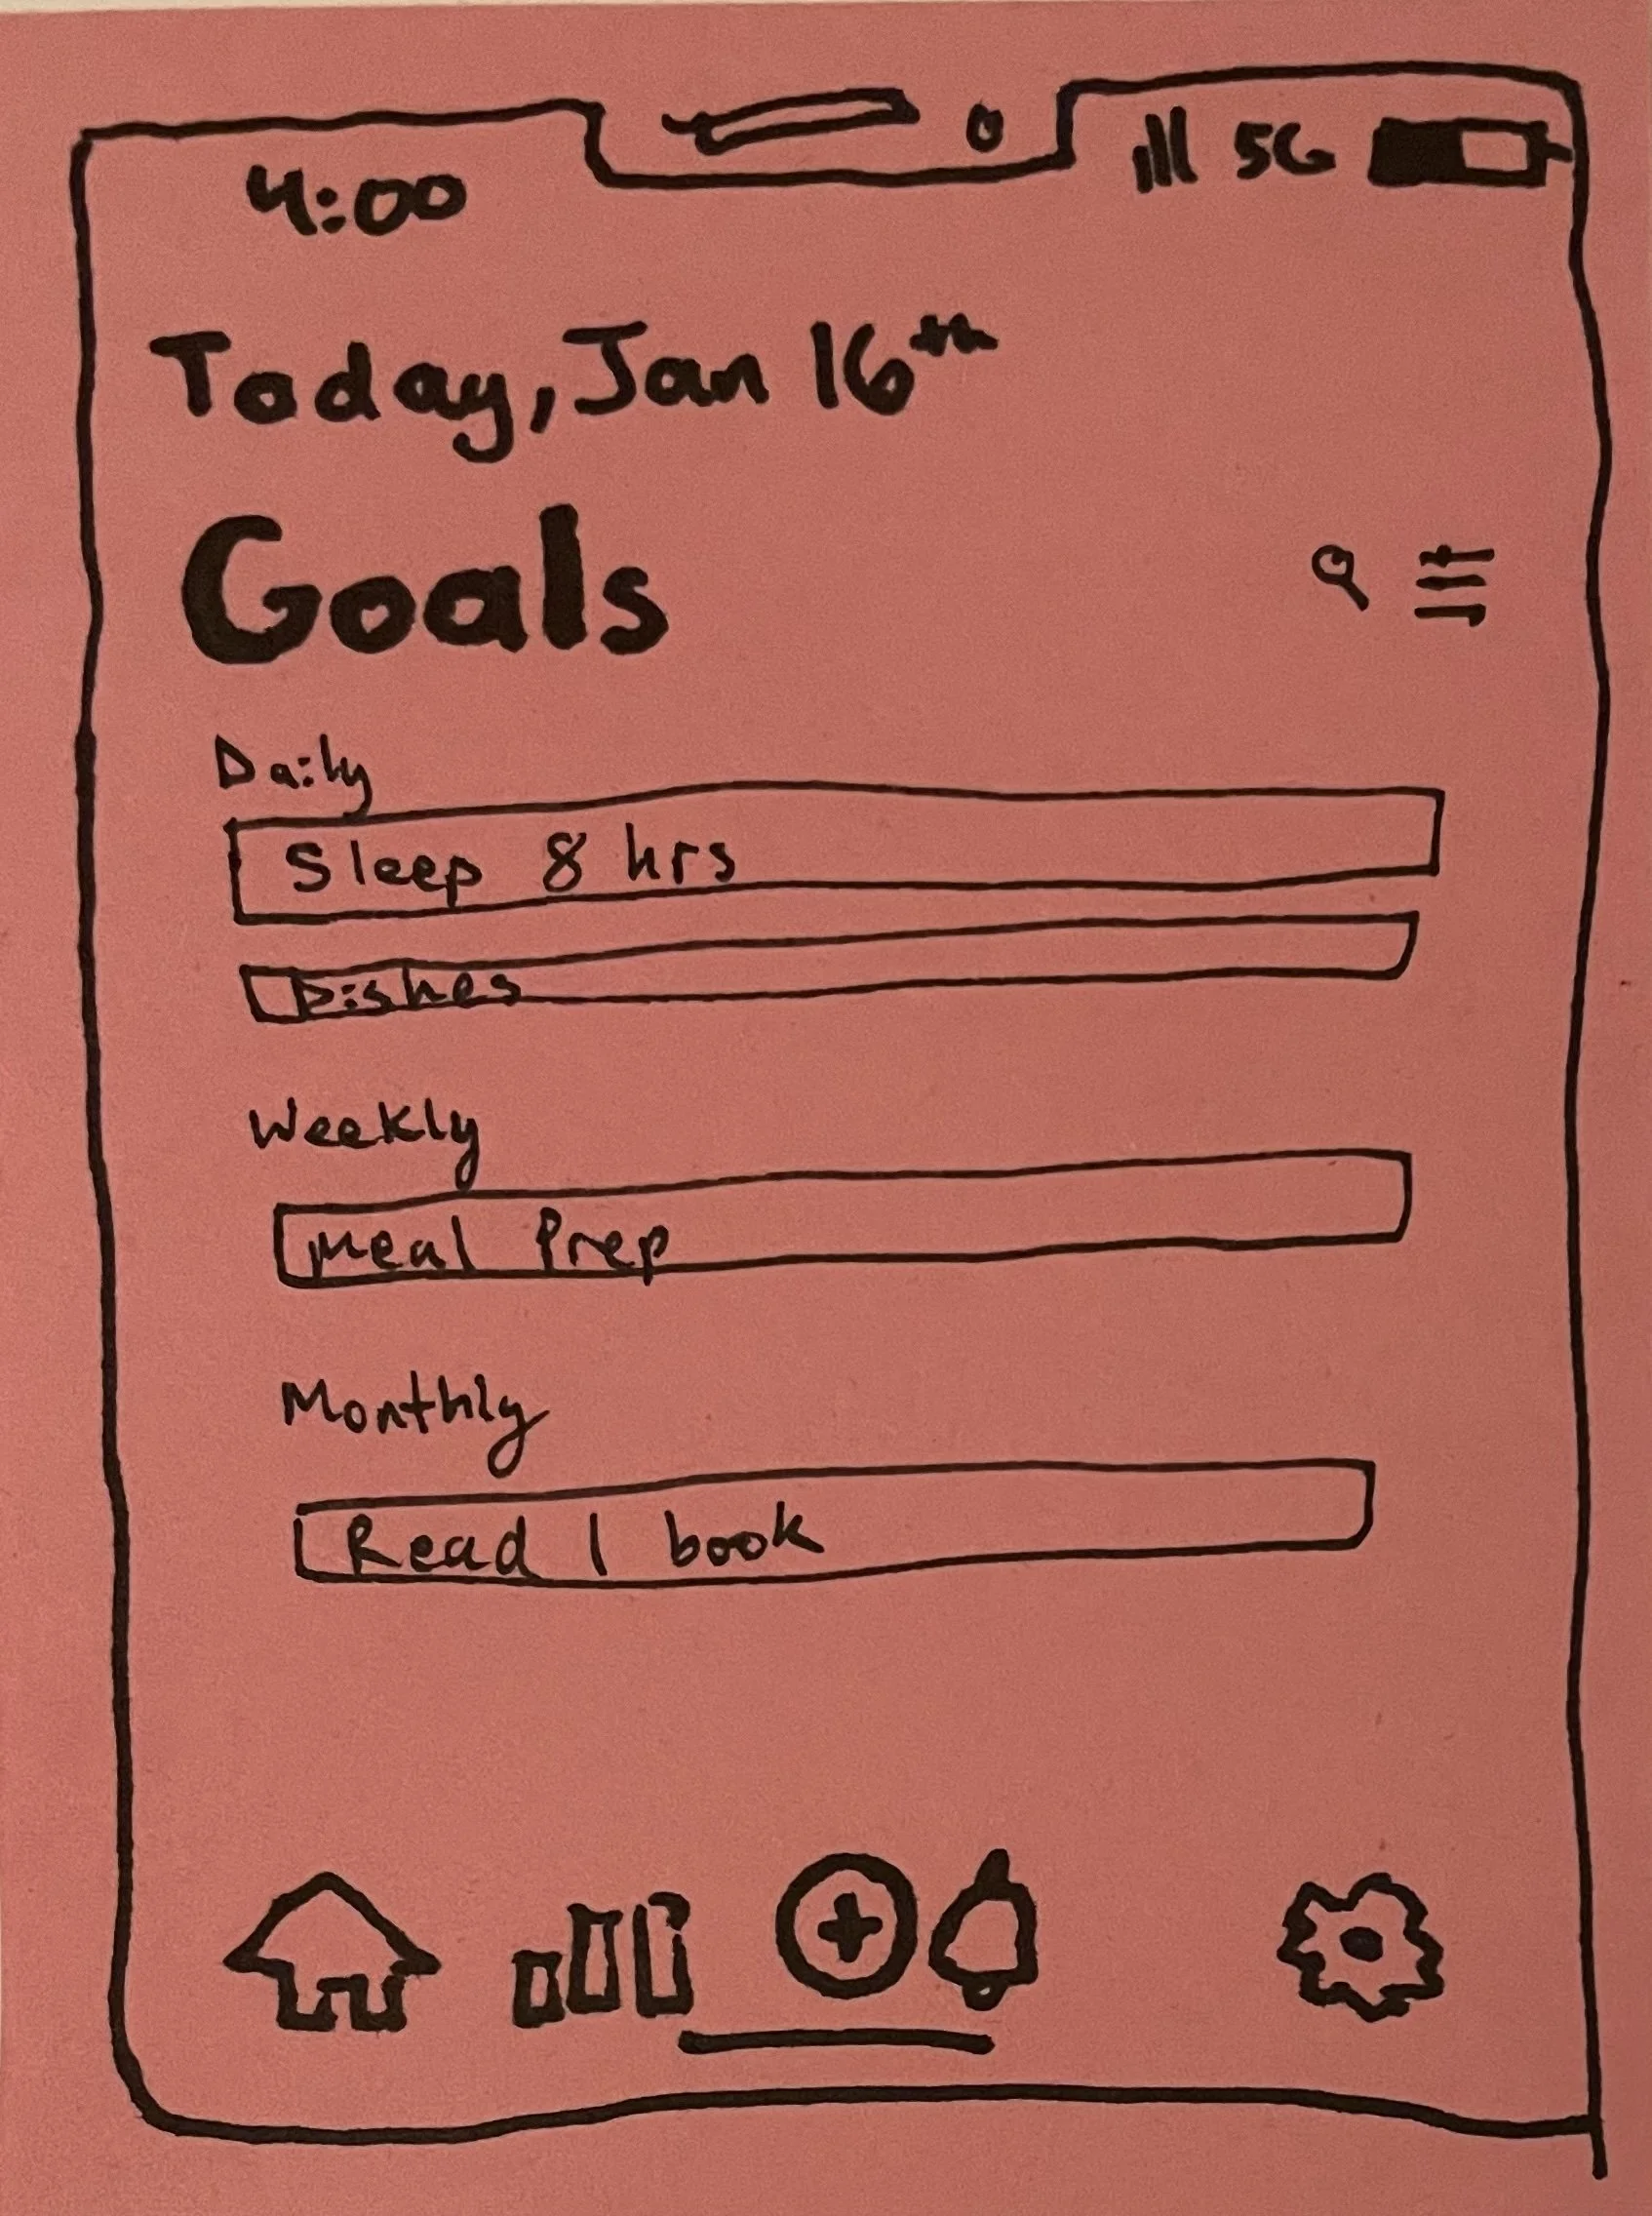 4:00 5G
Today, Jan 16th
Goals
Daily
Sleep 8 hrs
Dishes
Weekly
Meal Prep
Monthly
Read 1 book